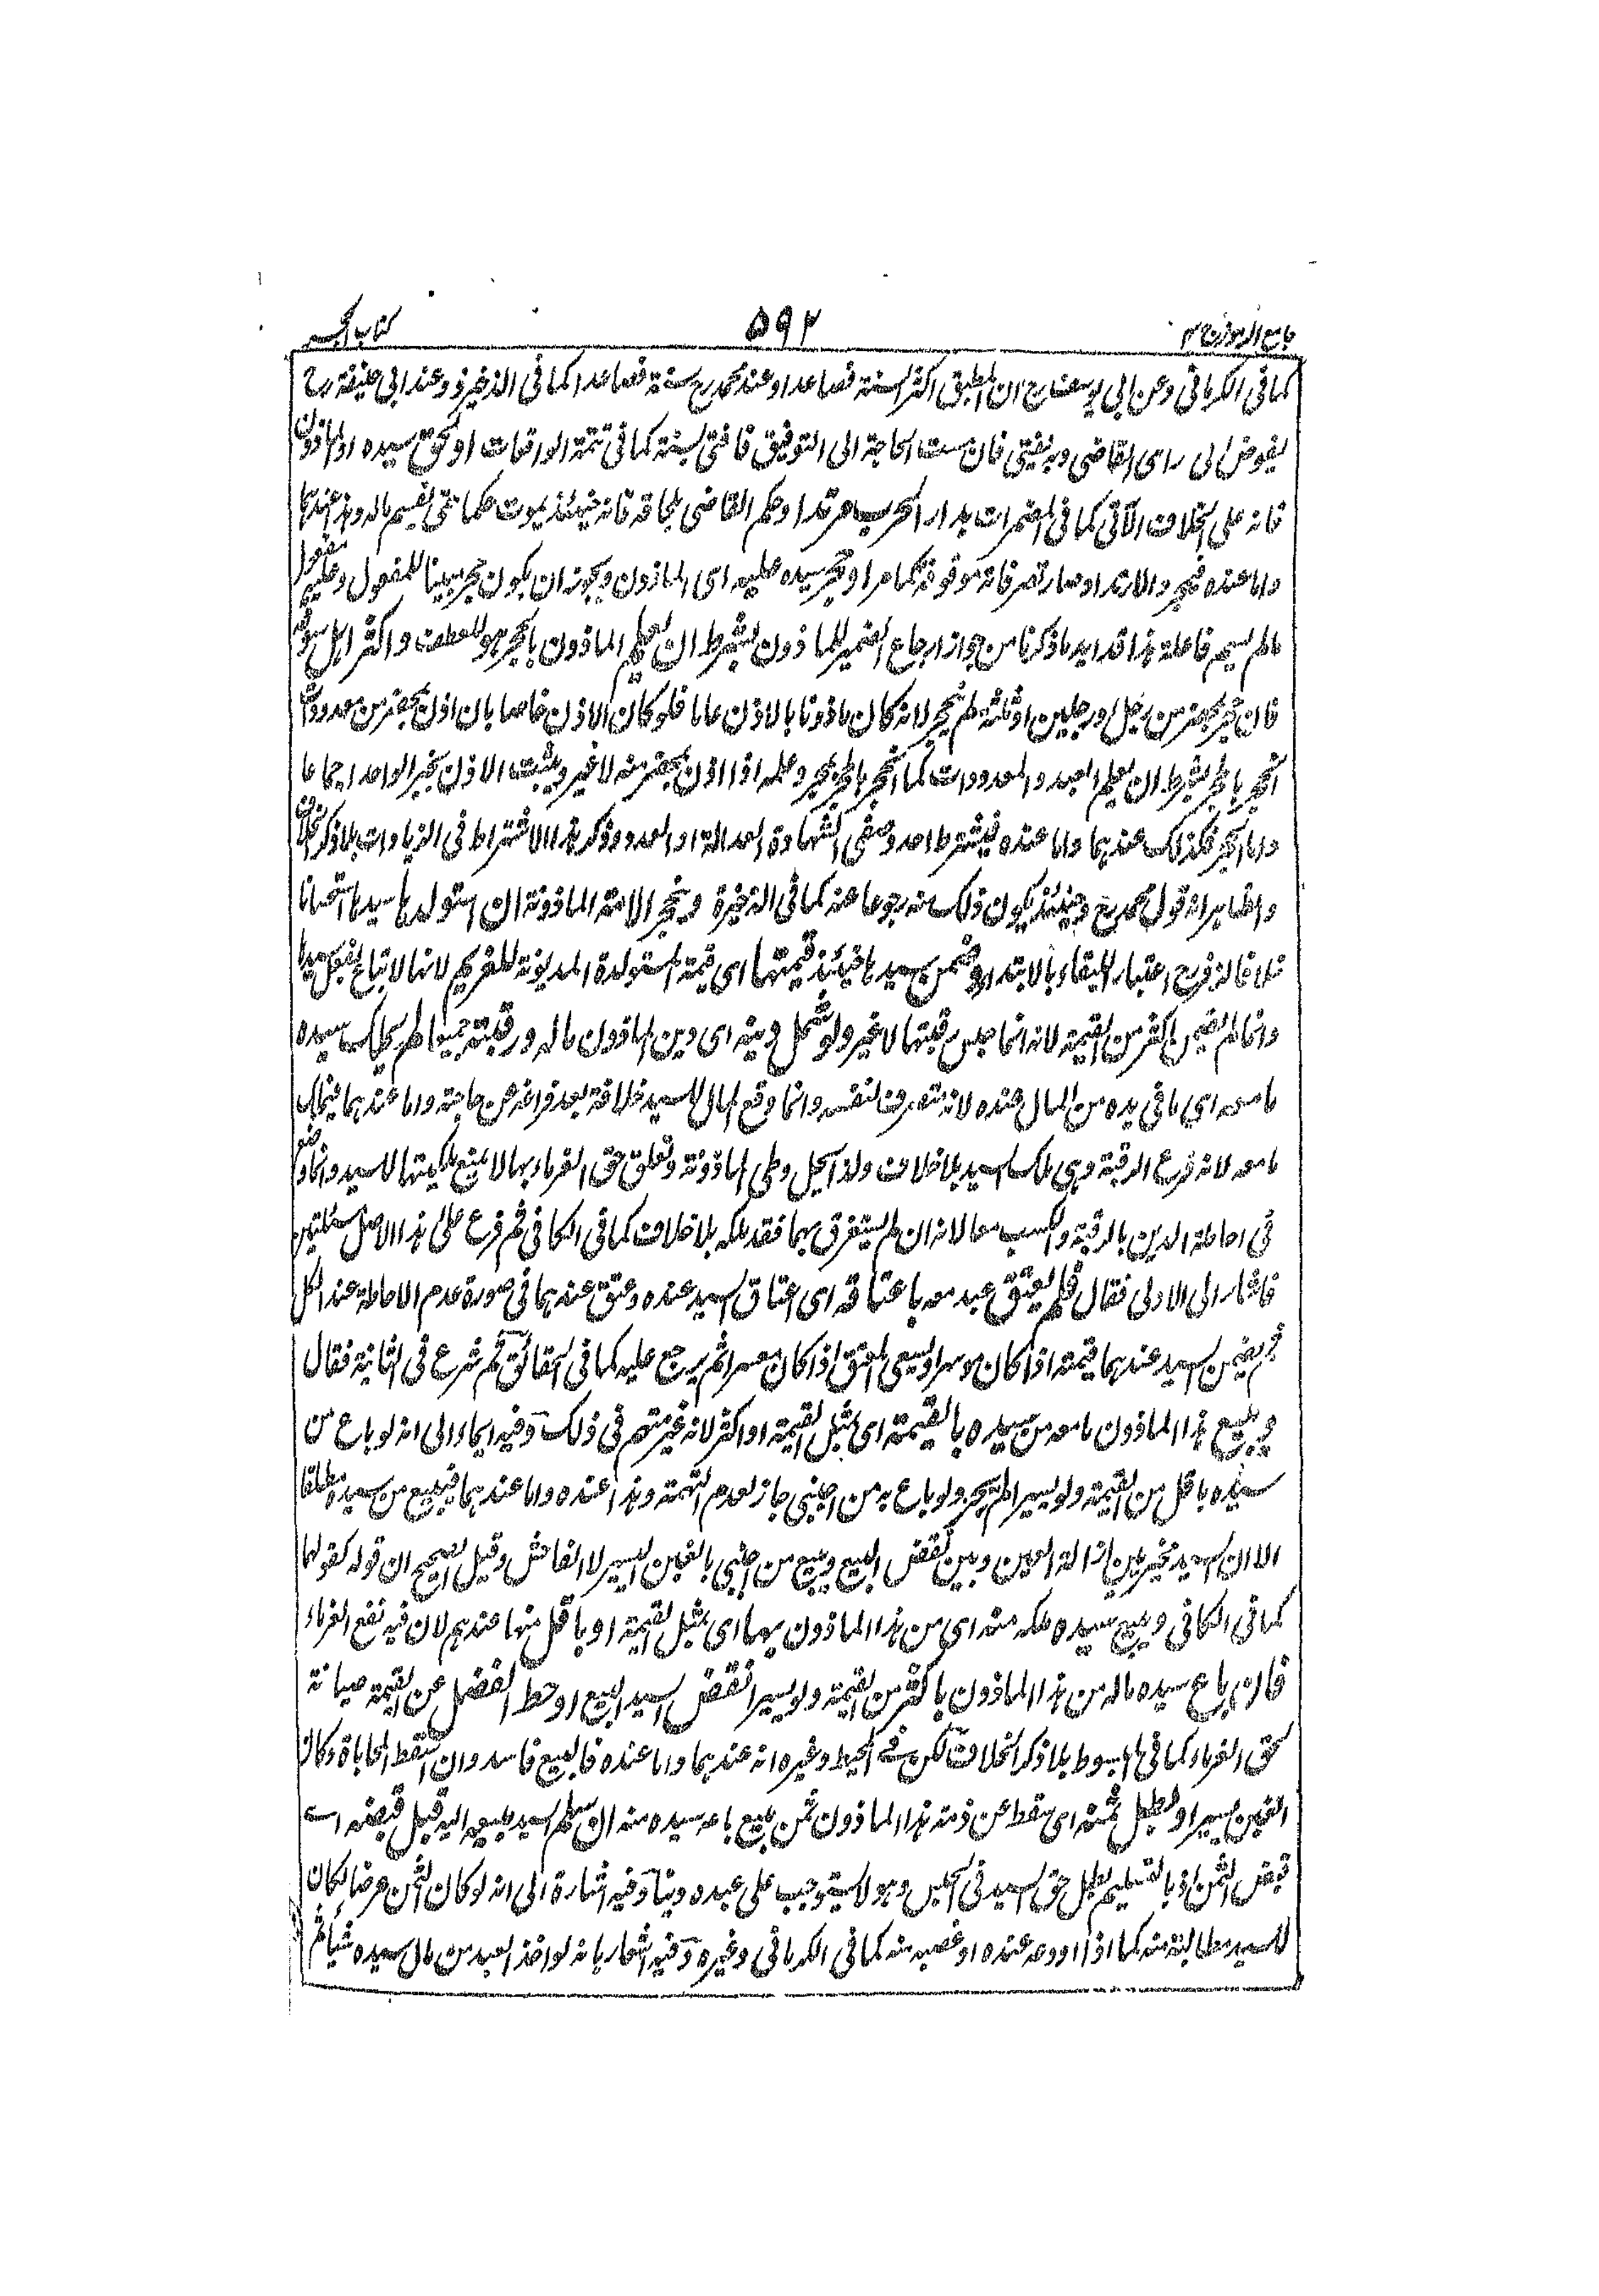 جامع الرموز ج ٢
٥٩٢
كتاب الحجر
كما فى الكرمانى وعن ابى يوسف رح ان المطبق اكثر السنة فصاعدا وعند محمد رح سنة فصاعدا كما فى الذخيرة وعند ابى حنيفة رح
يفوض الى راى القاضى وبه يفتى فان مست الحاجة الى التوفيق فافتى بسنة كما فى تتمة الواقعات او لحق سيده او الماذون
فانه على الخلاف الآتى كما فى المضمرات بدار الحرب مرتدا وحكم القاضى بلحاقه فانه حينئذ يموت حكما حتى يقسم ماله وهذا عندهما
واما عنده فيحجر والارتداد صار تصرفاته موقوفة كما مر او حجر سيده عليه اى الماذون ويجوز ان يكون حجر مبنيا للمفعول وعليه مفعول
مالم يسم فاعله هذا قد ايد ما ذكرنا من جواز ارجاع الضمير للماذون بشرط ان يعلم الماذون بالحجر هو للعطف واكثر اهل سوقه
فان حجر بمحضر من رجل او رجلين او ثلثة لم ينحجر لانه كان ماذونا بالاذن عاما فلو كان الاذن خاصا بان اذن بمحضر من معدودات
انحجر بالحجر بشرط ان يعلم العبد والمعدودات كما انحجر بالحجر بحجر وعلمه اذا اذن بمحضر منه لا غير ويثبت الاذن بخبر الواحد اجماعا
واما الحجر فكذلك عندهما واما عنده فيشترط احد وصفى الشهادة العدالة او العدد وذكر هذا الاشتراط فى الزيادات بلا ذكر خلاف
والظاهر انه قول محمد رح وحينئذ يكون ذلك منه رجوعا عنه كما فى الذخيرة وينحجر الامة الماذونة ان استولدها سيدها استحسانا
خلافا لزفر رح اعتبار للبقاء بالابتداء وضمن سيدها حينئذ قيمتها اى قيمة المستولدة المديونة للغريم لانها لا تباع بفعل سيدها
وانما لم يضمن اكثر من القيمة لانه انما حبس رقبتها لا غير ولو شمل دينه اى دين الماذون ماله ورقبته جميعا لم يملك سيده
ما معه اى ما فى يده من المال عنده لانه متصرف لنفسه وانما وقع المال للسيد خلافة بعد فراغه عن حاجته واما عندهما فيملك
ما معه لانه فرع الرقبة وهى ملك السيد بلا خلاف ولذا يحل وطى الماذونة وتعلق حق الغرماء بها لا يمنع ملكيتها للسيد وانما وضع
فى احاطة الدين بالرقبة والكسب معا لانه ان لم يستغرق بهما فقد ملكه بلا خلاف كما فى الكافى ثم فرع على هذا الاصل مسئلتين
فاشار الى الاولى فقال فلم يعتق عبد معه باعتاقه اى اعتاق السيد عنده وعتق عندهما فى صورة عدم الاحاطة عند الكل
ثم يضمن السيد عندهما قيمته اذا كان موسرا ويسعى المعتق اذا كان معسرا ثم يرجع عليه كما فى الحقائق ثم شرع فى الثانية فقال
ويبيع هذا الماذون ما معه من سيده بالقيمة اى بمثل القيمة او اكثر لانه غير متهم فى ذلك وفيه ايماء الى انه لو باع من
سيده باقل من القيمة ولو يسيرا لم يجز ولو باع به من اجنبى جاز لعدم التهمة وهذا عنده واما عندهما فيبيع من سيده مطلقا
الا ان السيد مخير بين ازالة الغبن وبين نقض البيع ويبيع من اجنبى بالغبن اليسير لا الفاحش وقيل الصحيح ان قوله كقولهما
كما فى الكافى ويبيع سيده ملكه منه اى من هذا الماذون بها اى بمثل القيمة او باقل منها عندهم لان فيه نفع الغرماء
فان باع سيده ماله من هذا الماذون باكثر من القيمة ولو يسيرا نقض السيد البيع او حط الفضل عن القيمة صيانة
لحق الغرماء كما فى المبسوط بلا ذكر الخلاف لكن فى المحيط وغيره انه عندهما واما عنده فالبيع فاسد وان اسقط المحاباة وكان
الغبن يسيرا وبطل ثمنه اى سقط عن ذمة هذا الماذون ثمن بيع باعه سيده منه ان سلم السيد مبيعه اليه قبل قبضه اى
قبض الثمن اذ بالتسليم بطل حق السيد فى الحبس وهو لا يستوجب على عبده دينا وفيه اشارة الى انه لو كان الثمن عرضا لكان
للسيد مطالبته منه كما اذا اودعه عنده او غصبه منه كما فى الكرمانى وغيره وفيه اشعار بانه لو اخذ العبد من مال سيده شيأ ثم